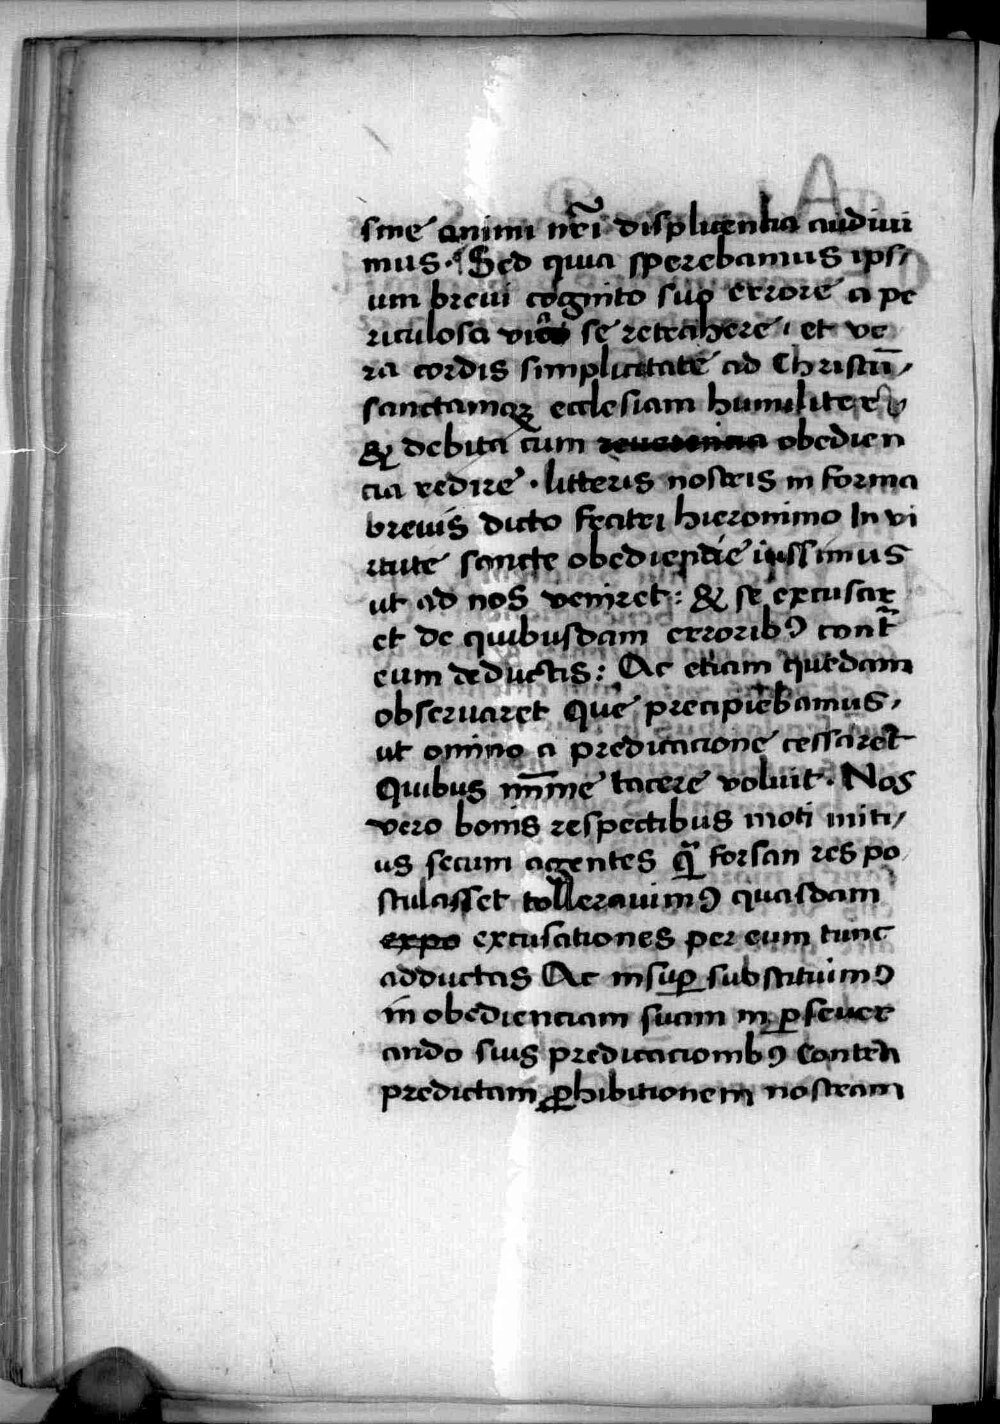 sine animi nr̃i displicentia audiui
mus · Sed quia sperebamus ips/
um breui cognito suo errore a pe
riculosa via se retrahere, et ve
ra cordis simplicitate ad Christū/
sanctamqꝫ ecclesiam humiliter
& debita cum reuerencia obedien
cia redire · litteris nostris in forma
breuis dicto fratri hieronimo In vi
rtute sancte obediencie iussimus
ut ad nos veniret : & se excusar
et de quibusdam erroribꝰ cont̃
eum deductis : Ac etiam quedam
obseruaret que precipiebamus,
ut omino a predicacione cessaret
Quibus mīme tacere voluit · Nos
vero bonis respectibus moti miti/
us secum agentes q̃ forsan res po
stulasset tollerauimꝰ quasdam
expo excusationes per eum tunc
adductas Ac insuꝑ substituimꝰ
in obedienciam suam in ꝑseuer
ando suis predicacionibꝰ Contra
predictam ꝓhibitionem nostram